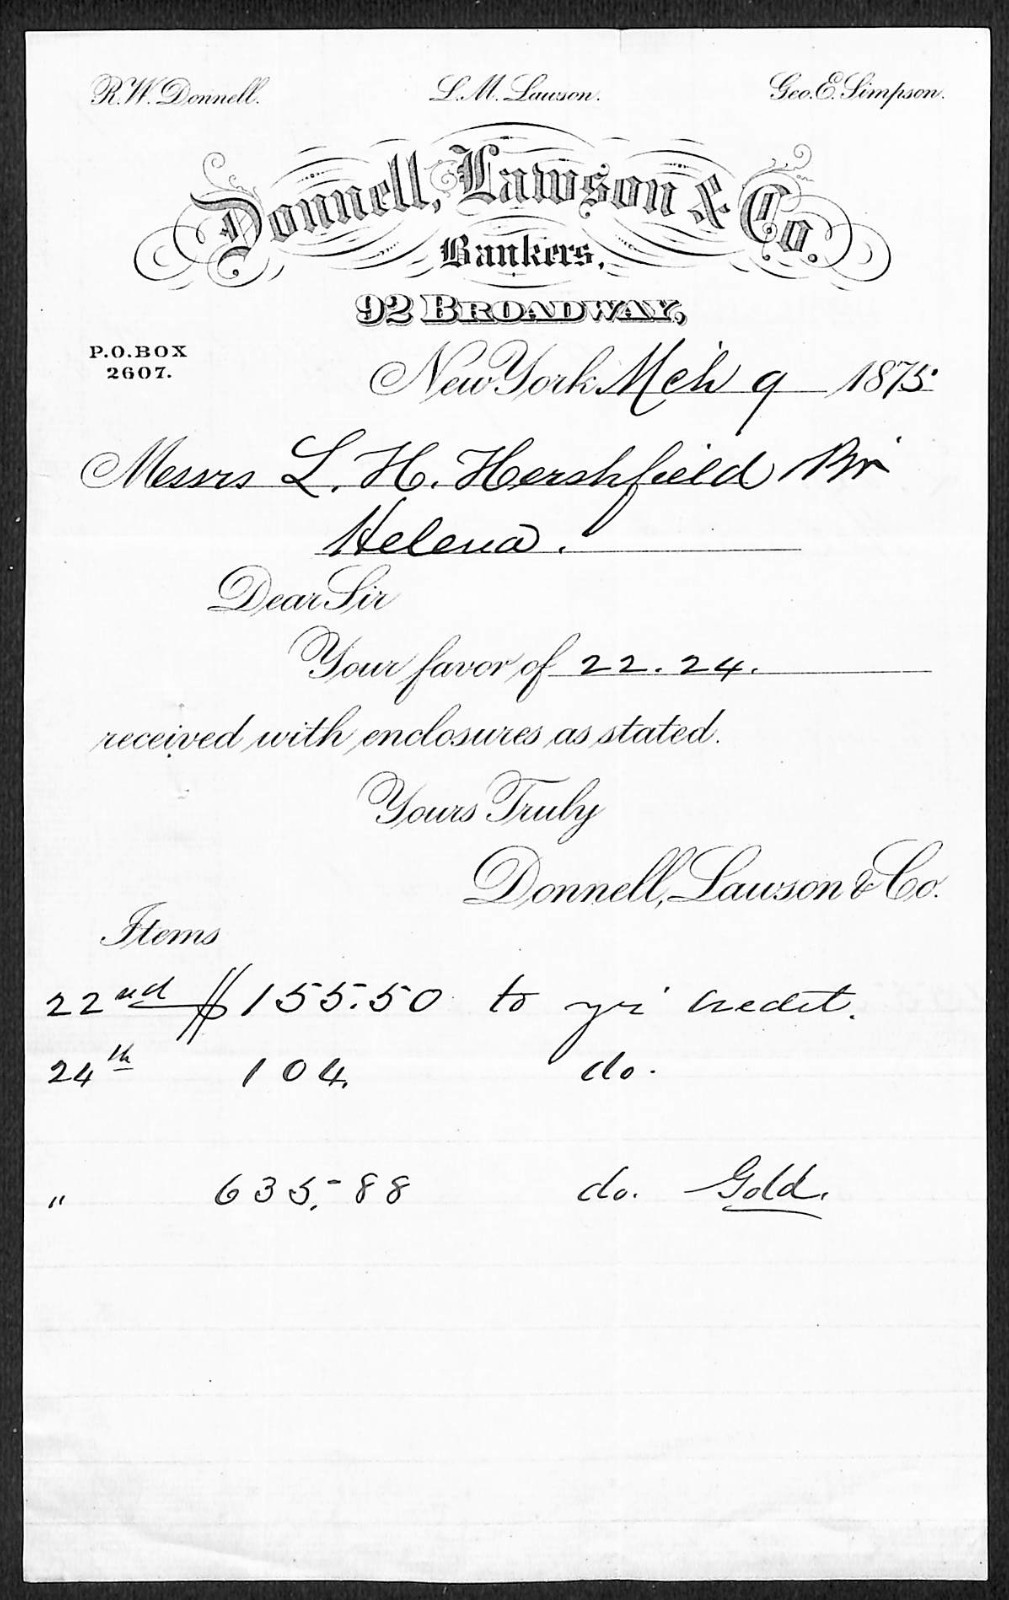 R.W. Donnell. L.M. Lawson. Geo. E. Simpson.
Donnell, Lawson & Co.
Bankers,
92 BROADWAY,
P.O. BOX
2607.
New York Mch 9 1875.
Messrs L. H. Hershfield Br
Helena.
Dear Sir
Your favor of 22. 24.
received with enclosures as stated.
Yours Truly
Donnell, Lawson & Co.
Items
22nd $155.50 to yr credit.
24th 104. do.
" 635.88 do. Gold.